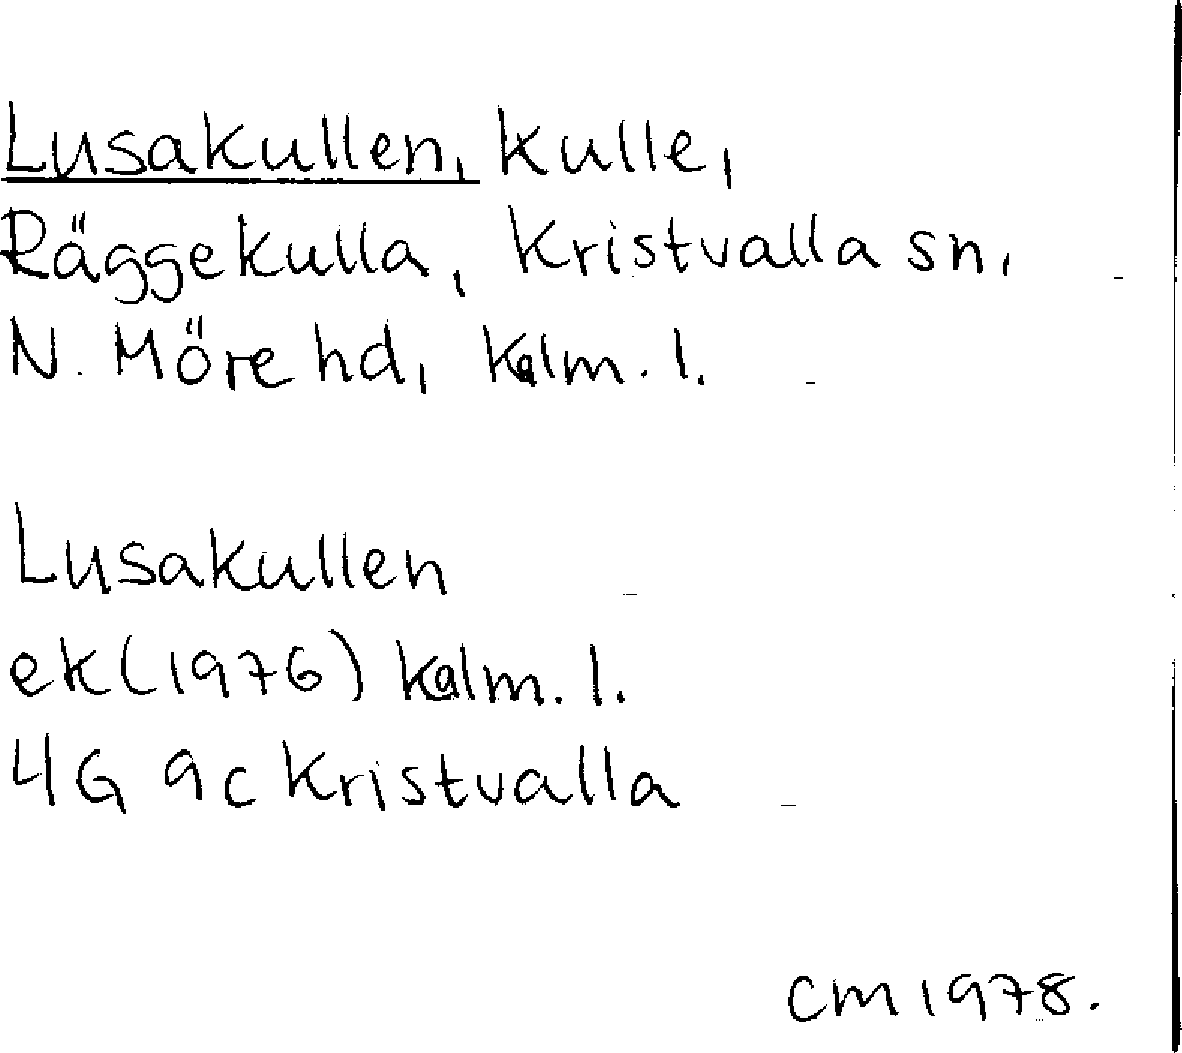 Lusakullen, kulle,
Räggekulla, Kristvalla sn,
N. Möre hd, Kalm. l.
Lusakullen
ek (1976) Kalm. l.
4G 9c Kristvalla
CM 1978.